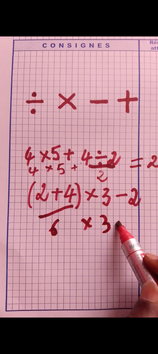 CONSIGNES
÷ × − +
4 × 5 + 4 ÷ 2 = 2
4 × 5 + 2
(2 + 4) × 3 − 2
6 × 3